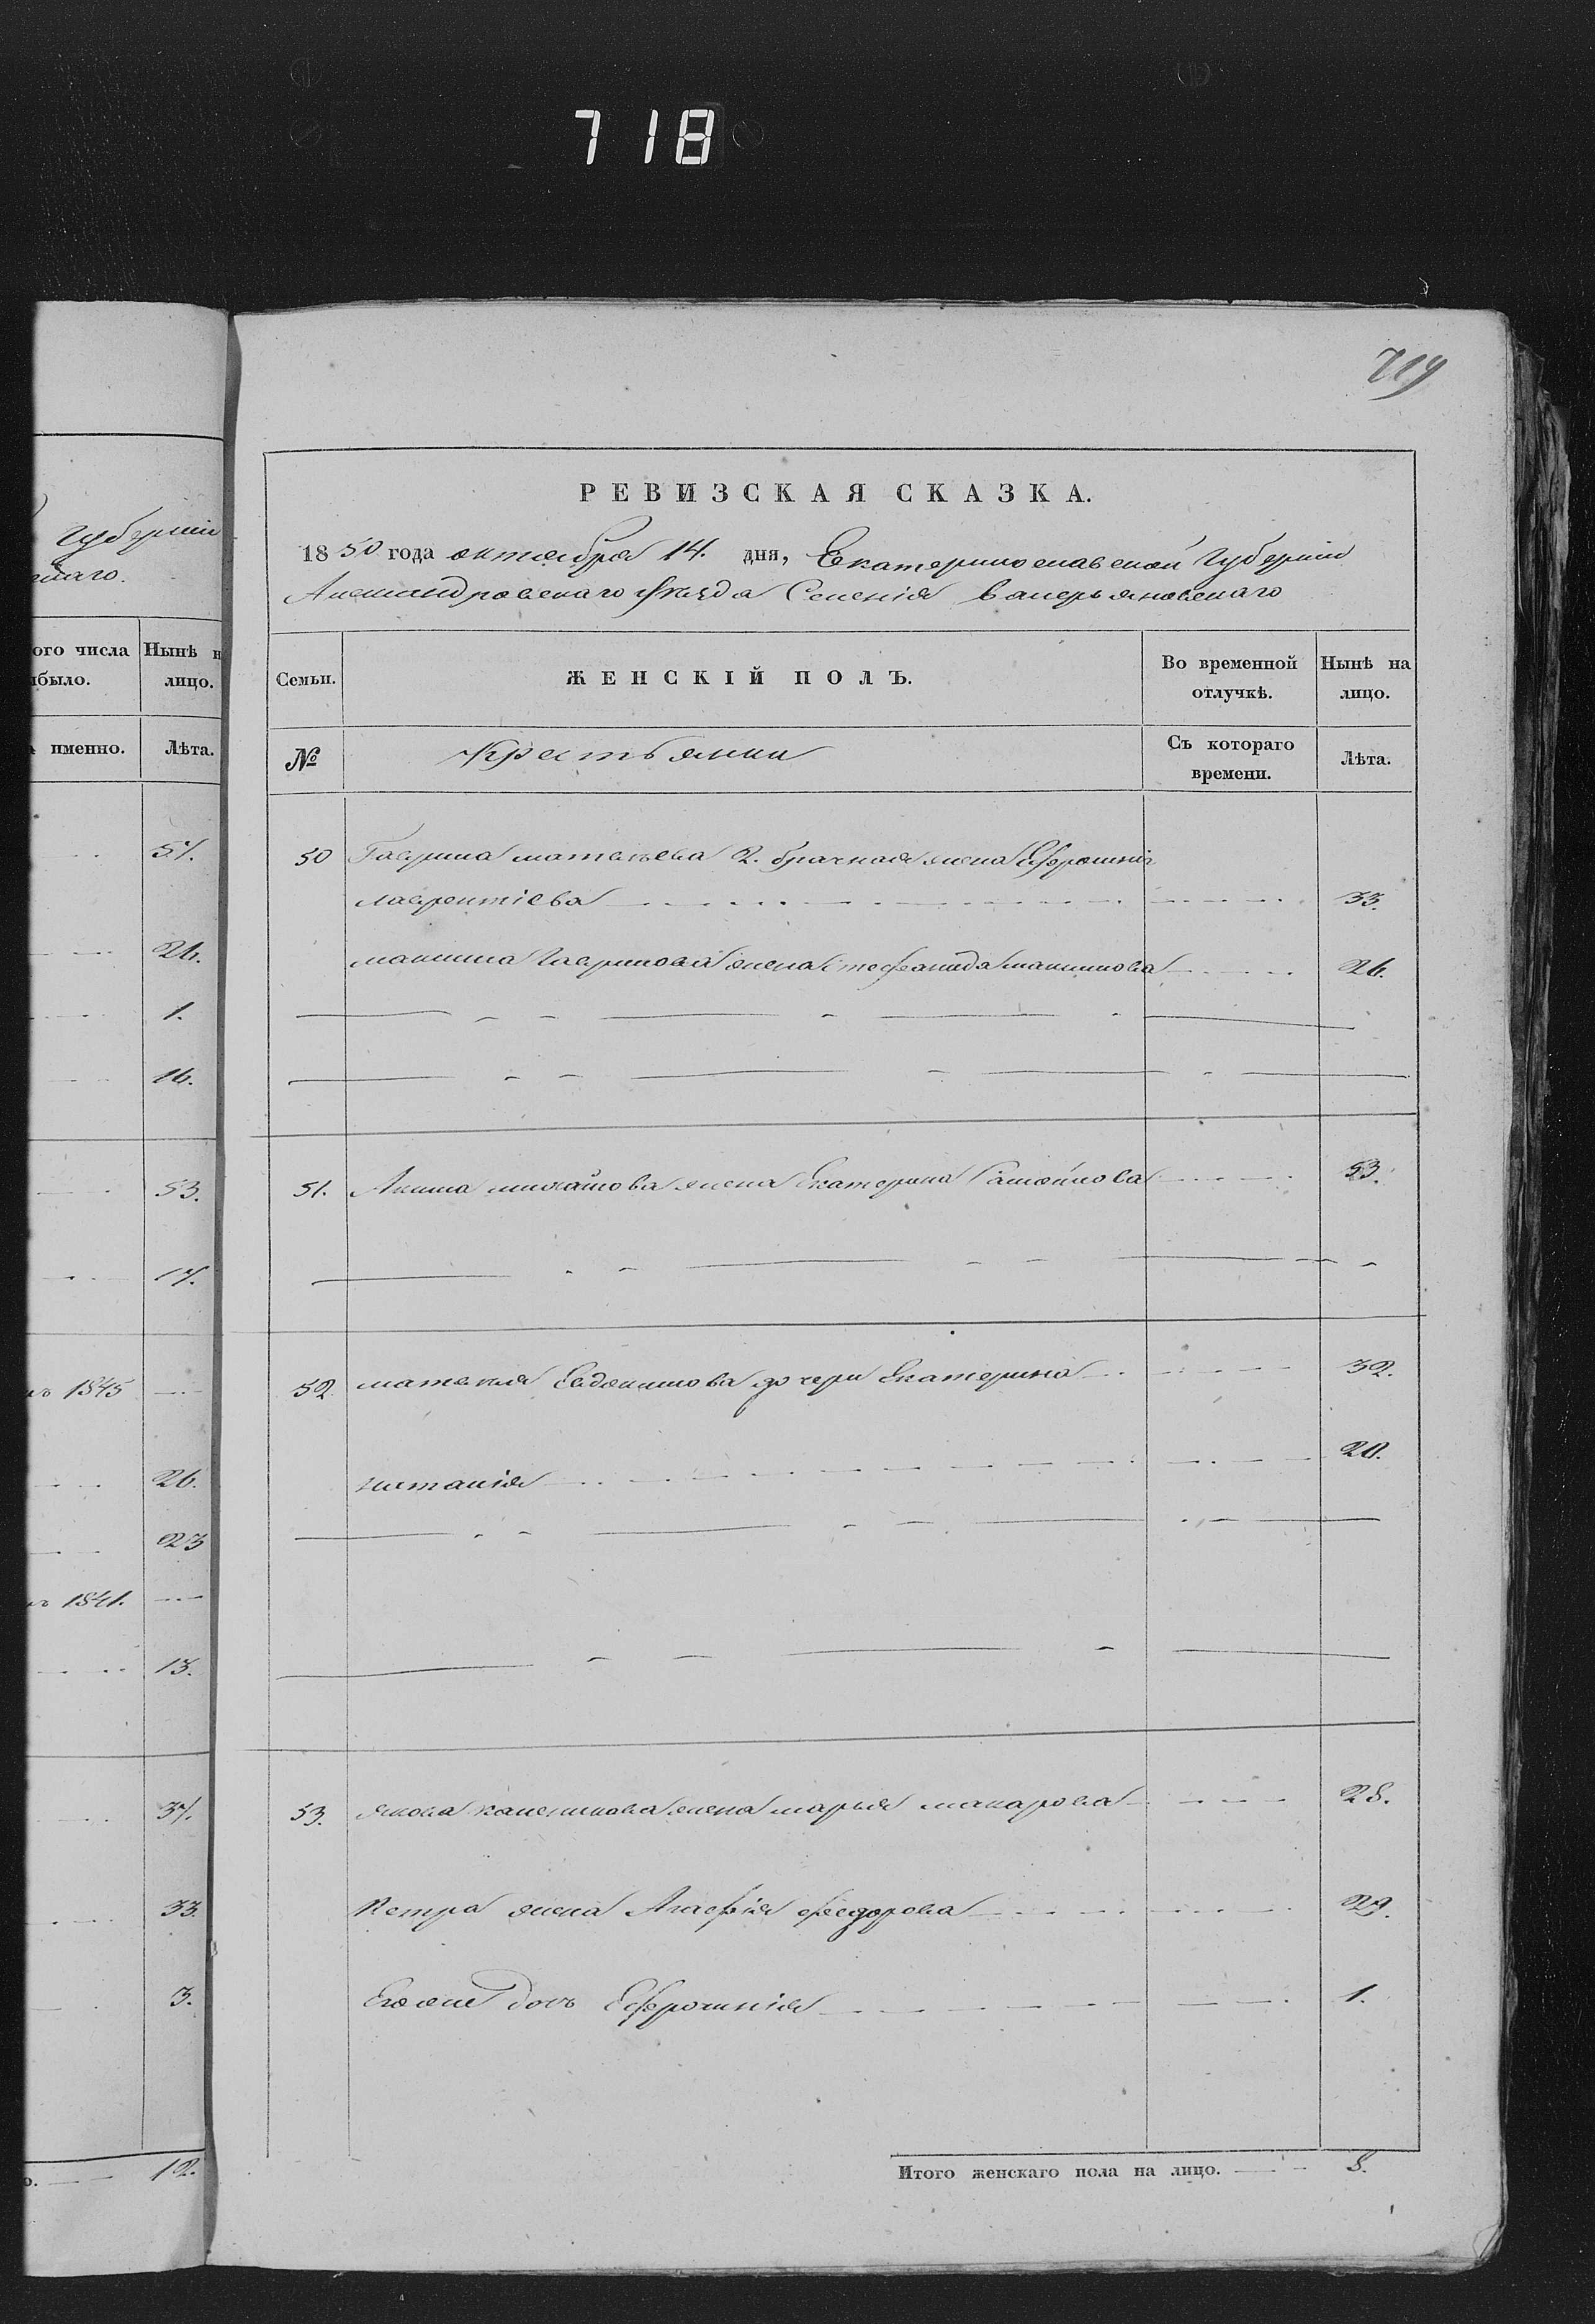 718
719
губерніи
ого числа
Нынѣ н
ыбыло.
лицо.
именно.
Лѣта.
51.
26.
1.
16.
53.
17.
1845
26.
23
1841.
13.
37.
33.
3.
12.
РЕВИЗСКАЯ СКАЗКА.
1850 года октября 14. дня, Екатеринославской губерніи
Александровскаго уѣзда Селенія Валерьяновскаго
Семьи.
ЖЕНСКІЙ ПОЛЪ.
Во временной отлучкѣ.
Нынѣ на лицо.
№
Крестьянки
Съ котораго времени.
Лѣта.
50 Гаврила Матвѣева 2. брачная жена Ефросинія
Лаврентіева 33.
Максима Гаврилова жена Стефанида Максимова 26.
51. Акима Михайлова жена Екатерина Самойлова 53.
52 Матвѣя Евдокимова дочери Екатерина 32.
Наталія 20.
53. Якова Калинникова жена Марья Макарова 28.
Петра жена Агафія Федорова 29.
Его же дочь Ефросинія 1.
Итого женскаго пола на лицо. 8.